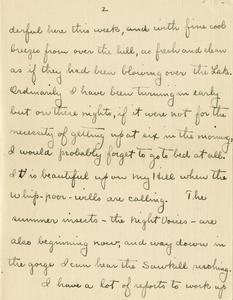 2
derful here this week, and with fine cool
breezes from over the hill, as fresh and clean
as if they had been blowing over the Lake.
Ordinarily I have been turning in early
but on these nights, if it were not for the
necessity of getting up at six in the morning,
I would probably forget to go to bed at all.
It is beautiful up on my Hill when the
whip-poor-wills are calling. The
summer insects - the Night Voices - are
also beginning now, and way down in
the gorge I can hear the Sawkill rushing.
I have a lot of reports to work up